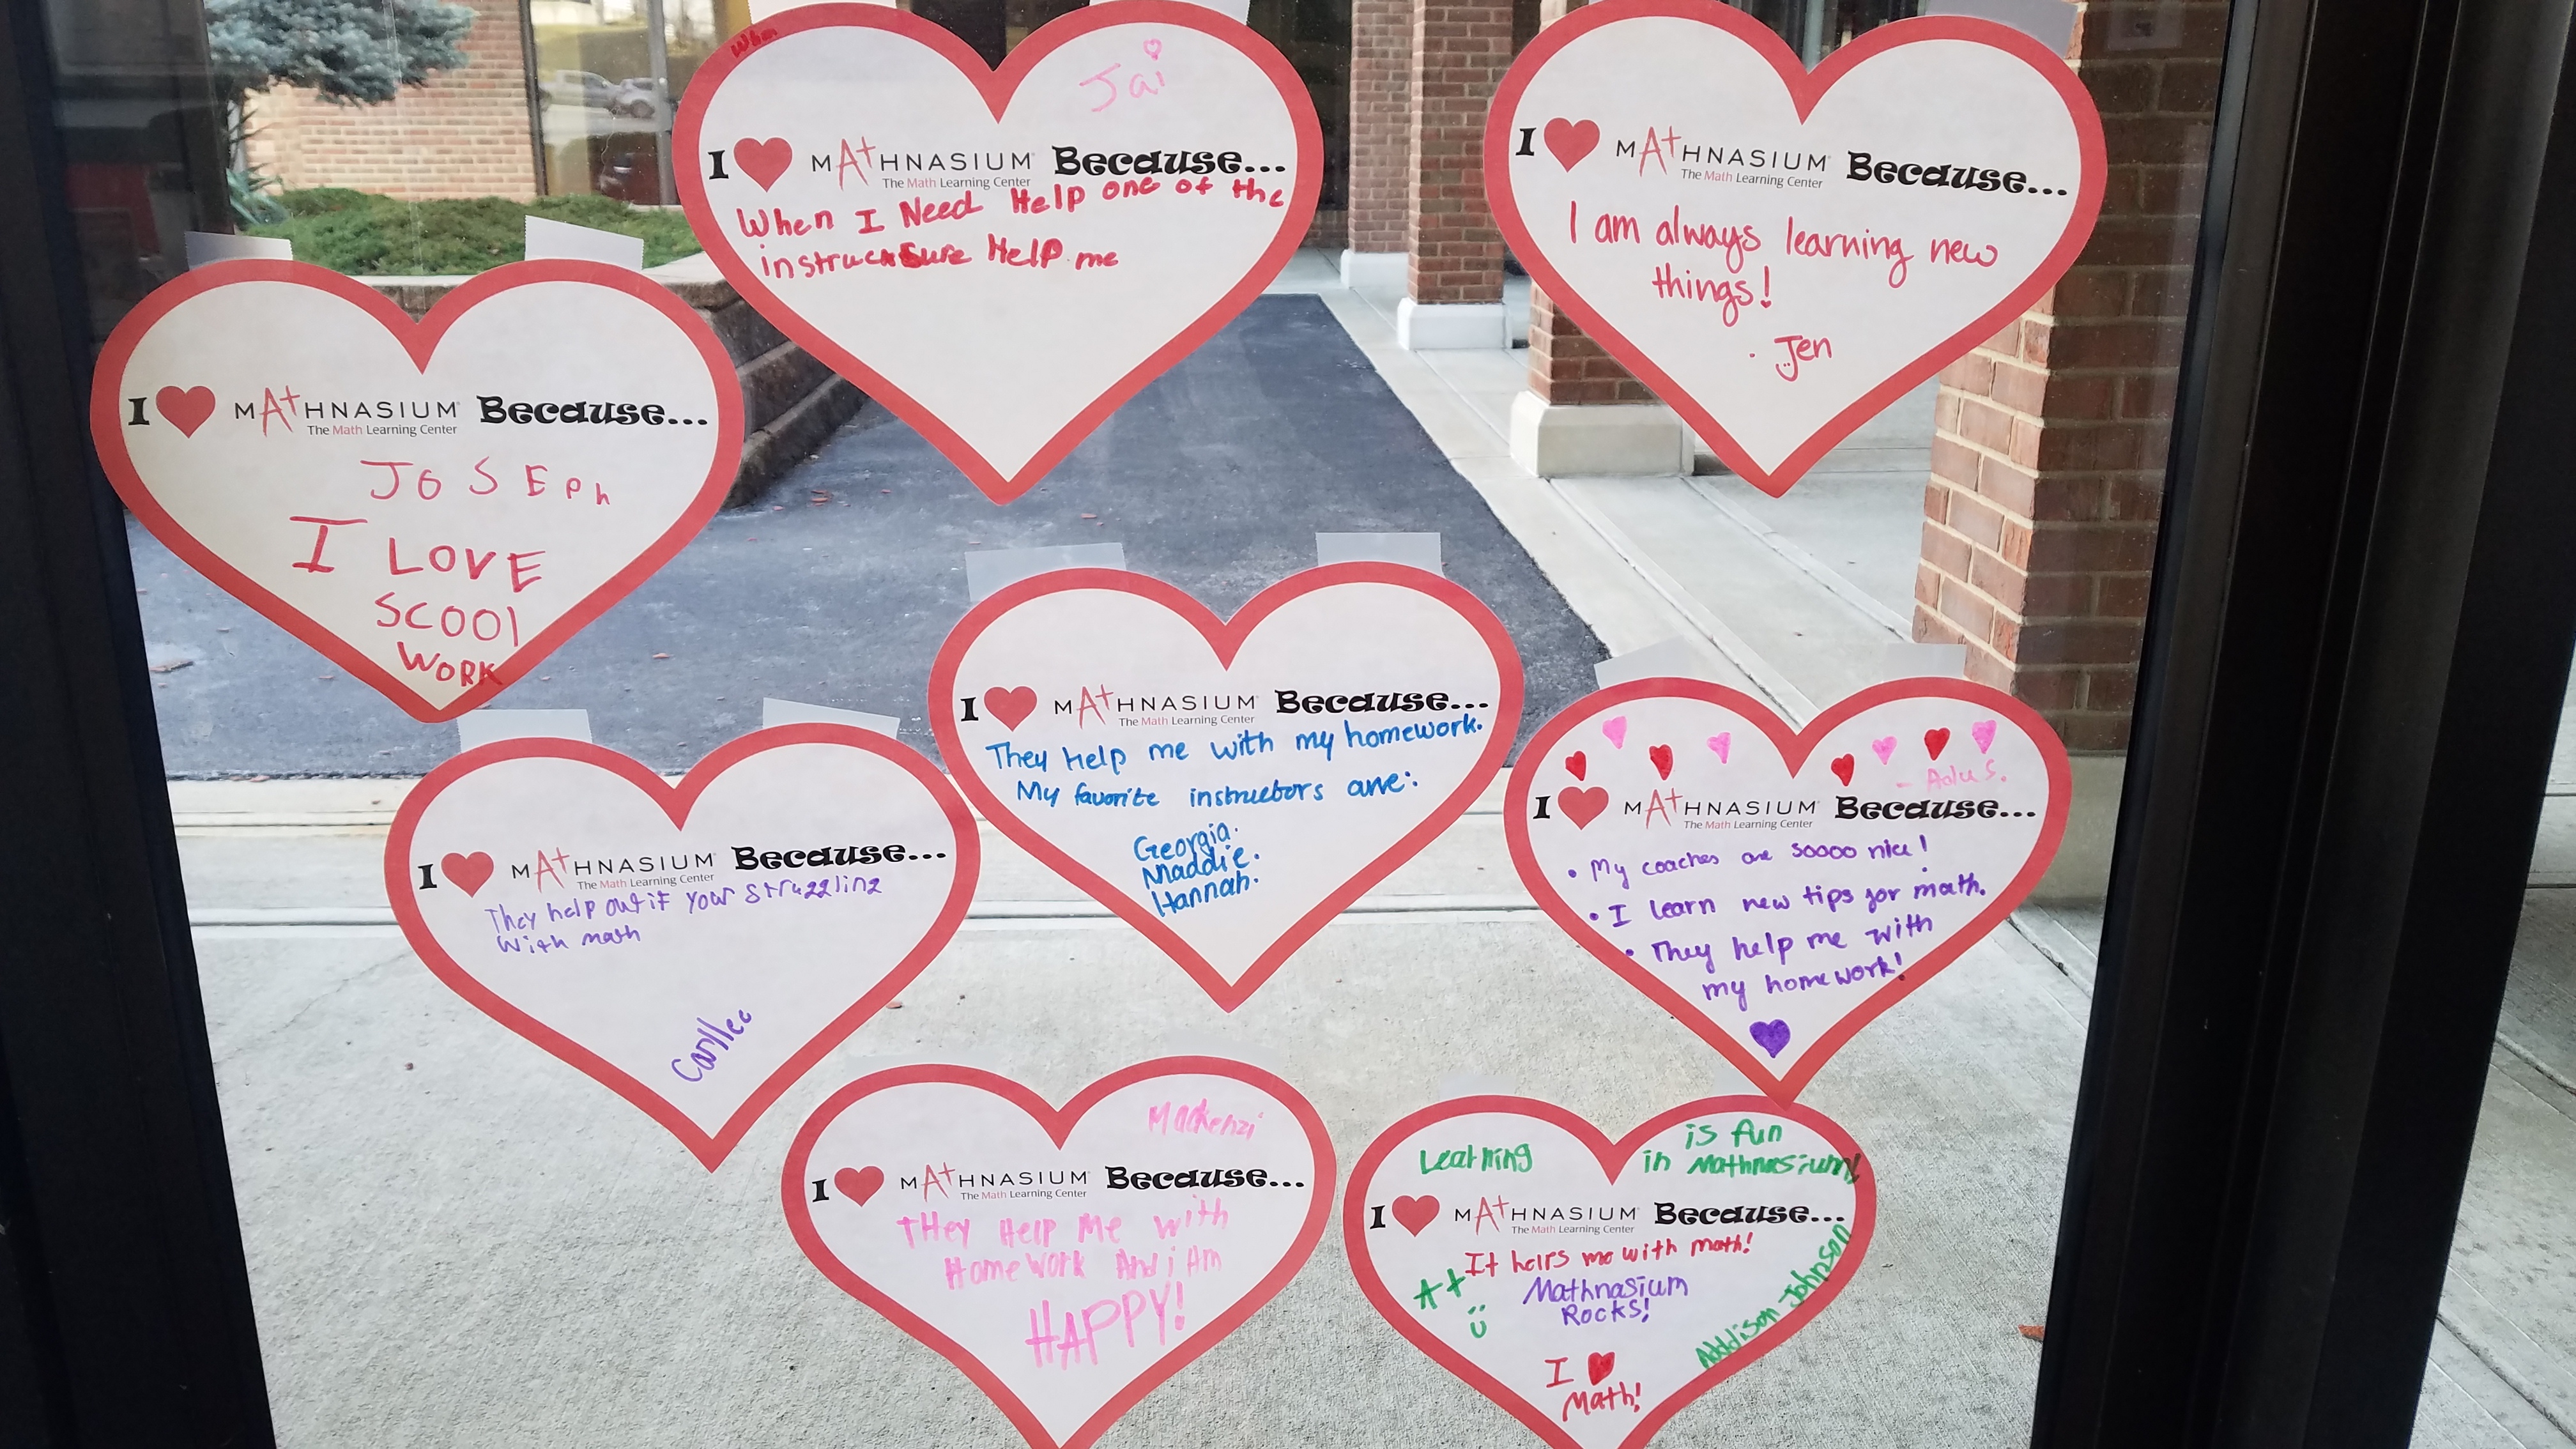 When
Jai
I MATHNASIUM Because...
The Math Learning Center
When I Need Help one of the
Help me
I MATHNASIUM Because...
The Math Learning Center
I am always learning new
things!
Jen
I MATHNASIUM® Because...
The Math Learning Center
JOSEph
I LOVE
SCOOl
WORK
I MATHNASIUM® Because...
The Math Learning Center
They help me with my homework.
My favorite instructors are:
Georgia.
Maddie.
Hannah.
I MATHNASIUM Because...
The Math Learning Center
They help out if your struggling
With math
I MATHNASIUM Because...
The Math Learning Center
• My coaches are soooo nice!
• I learn new tips for math.
• They help me with
my homework!
Mackenzi
I MATHNASIUM Because...
The Math Learning Center
tHey Help Me with
HomeWork And i Am
HAPPY!
Learning is fun
in Mathnasium!
I MATHNASIUM Because...
The Math Learning Center
It helps me with math!
A++
Mathnasium
Rocks!
Adddison Johnson
I
Math!